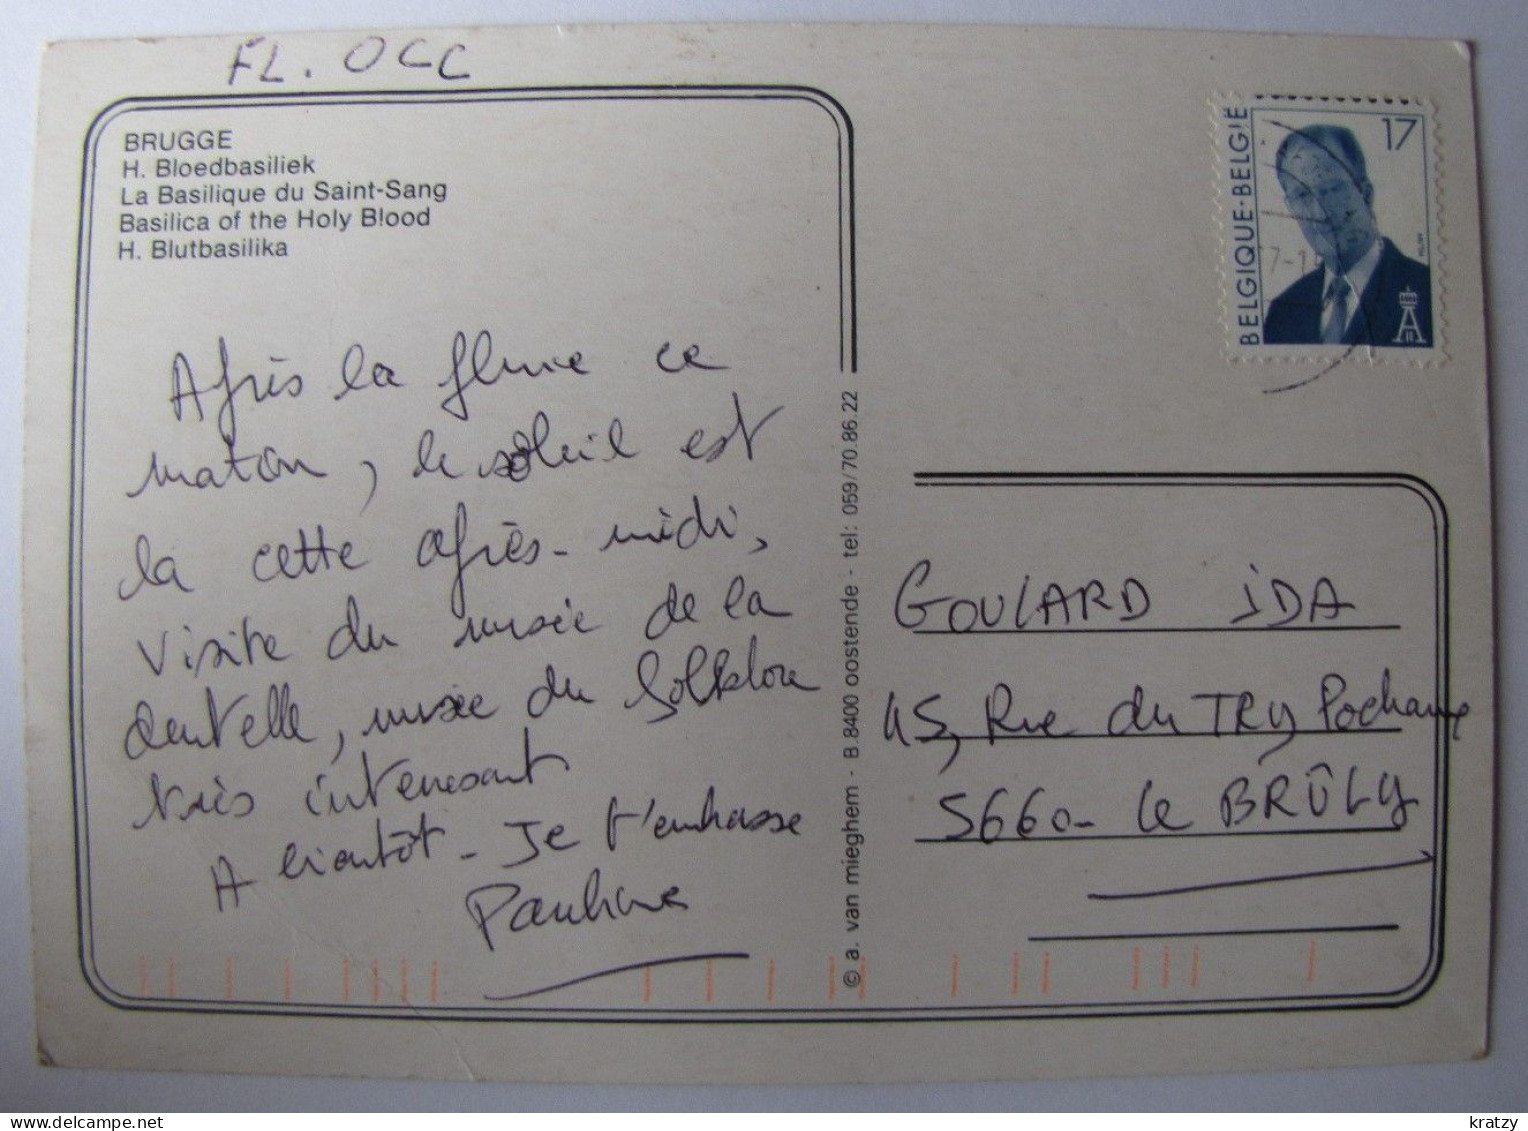 FL. OCC
BRUGGE
H. Bloedbasiliek
La Basilique du Saint-Sang
Basilica of the Holy Blood
H. Blutbasilika
Après la pluie ce
matin, le soleil est
la cette après-midi,
visite du musée de la
dentelle, musée du folklore
très intéressant
A bientôt - Je t'embrasse
Pauline
© a. van mieghem - B 8400 oostende - tel: 059/70.86.22
BELGIQUE-BELGIË
17
GOULARD IDA
45, Rue du TRY Pochaux
5660 - le BRÛLY
kratzy